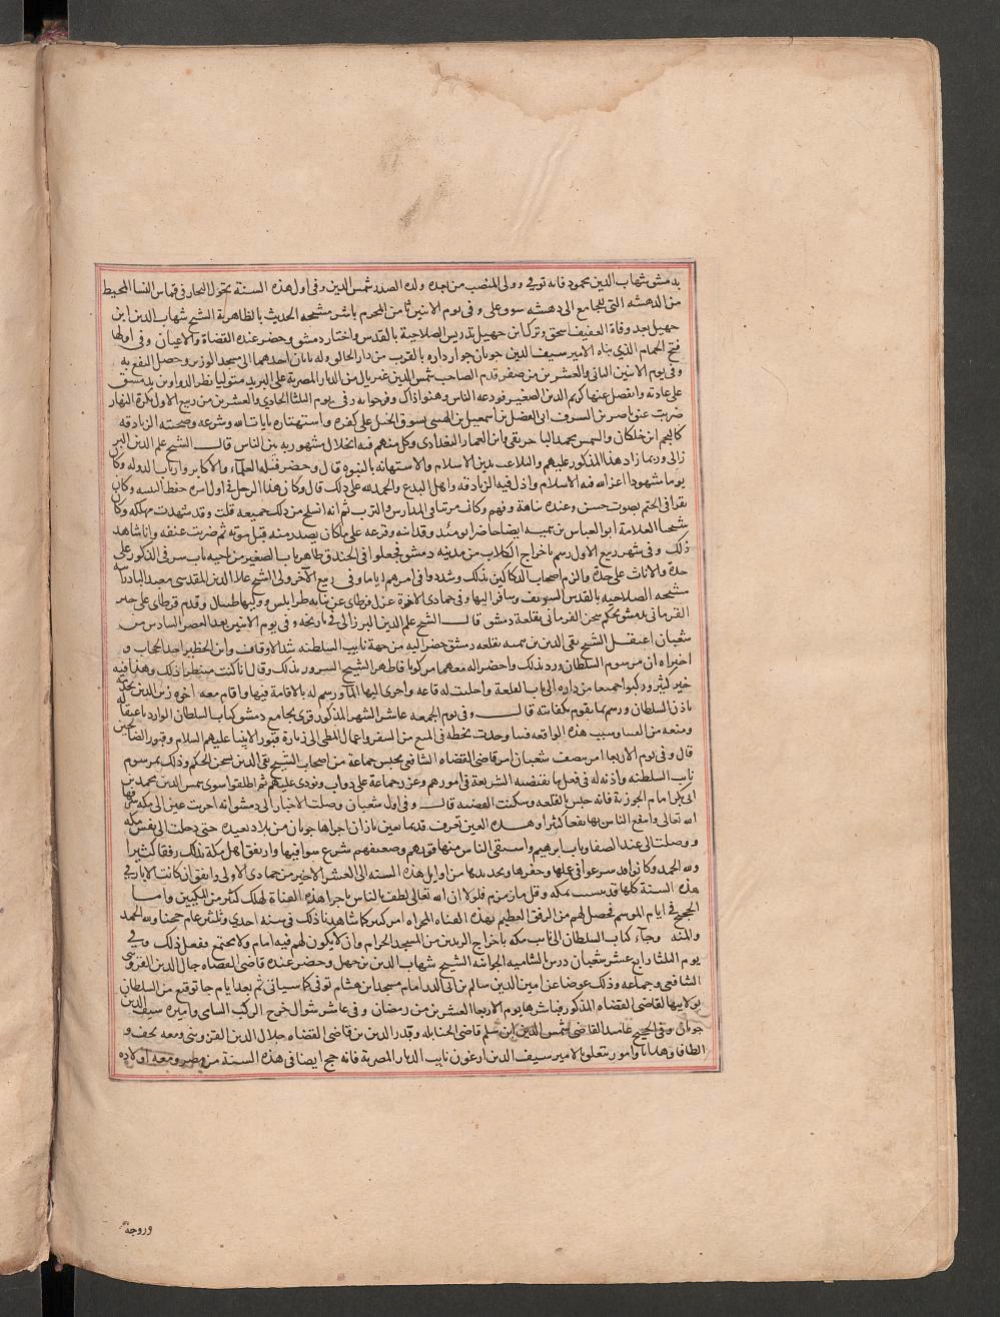 بدمشق شهاب الدين محمود فانه توفي وولى المنصب من بعده ولده الصدر شمس الدين وفى اول هذه السنة تحول التجار فى قماش النسا المخيط
من الدهشه التى للجامع الى دهشه سوق على وفى يوم الاثنين ثامن المحرم باشر مشيخه الحديث بالظاهرية الشيخ شهاب الدين ابن
جهبل بعد وفاة العفيف اسحق وترك ابن جهبل تدريس الصلاحية بالقدس واختار دمشق وحضر عنده القضاة والاعيان وفى اولها
فتح الحمام الذى بناه الامير سيف الدين جوبان جوار داره بالقرب من دار الجالق وله بابان احدهما الى مسجد الوزير وحصل النفع به
وفى يوم الاثنين الثانى والعشرين من صفر قدم الصاحب شمس الدين غبريال من الديار المصرية على البريد متوليا نظر الدواوين بدمشق
على عادته وانفصل عنها كريم الدين الصغير فودعه الناس وهنوا ذاك وفرحوا به وفى يوم الثلثا الحادى والعشرين من ربيع الاول بكرة النهار
ضربت عنق ناصر بن الشرف ابى الفضل بن اسمعيل بن الهيتى بسوق الخيل على كفره واستهتاره بايات الله وشرعه وصحبته الزنادقه
كالنجم ابن خلكان والشمس محمد الباجربقى وابن المعمار البغدادى وكل منهم فيه انحلال مشهور به بين الناس قال الشيخ علم الدين البر
زالى وربما زاد هذا المذكور عليهم والتلاعب بدين الاسلام والاستهانه بالنبوة قال وحضر قتله العلماء والاكابر وارباب الدوله وكان
يوما مشهودا اعز الله فيه الاسلام واذل فيه الزنادقه واهل البدع والحمد لله على ذلك قال وكان هذا الرجل فى اول امره حفظ التنبيه وكان
يقرا فى الختم بصوت حسن وعنده نباهة وفهم وكان مرتبا فى المدارس والترب ثم انه انسلخ من ذلك جميعه قلت وقد شهدت مهلكه وكان
شيخنا العلامة ابو العباس بن تيميه ايضا حاضرا يومئذ وقد اتاه وقرعه على ما كان يصدر منه قبل موته ثم ضربت عنقه وانا شاهد
ذلك وفى شهر ربيع الاول رسم باخراج الكلاب من مدينه دمشق فجعلوا فى الخندق ظاهر باب الصغير من ناحيه باب شرقى الذكور على
حدة والاناث على حدة والزم اصحاب الدكاكين بذلك وشددوا فى امرهم اياما وفى ربيع الآخر ولى الشيخ علاء الدين المقدسى معيد البادرائيه
مشيخه الصلاحيه بالقدس الشريف وسافر اليها وفى جمادى الاخرة عزل قرطاى عن نيابه طرابلس ووليها طينال وقدم قرطاى على خبز
القرمانى بدمشق بحكم سجن القرمانى بقلعة دمشق قال الشيخ علم الدين البرزالى فى تاريخه وفى يوم الاثنين بعد العصر السادس من
شعبان اعتقل الشيخ تقى الدين بن تيميه بقلعه دمشق حضر اليه من جهة نايب السلطنه مشد الاوقاف وابن الخطير احد الحجاب و
اخبراه ان مرسوم السلطان ورد بذلك واحضرا له معهما مركوبا فاظهر الشيخ السرور بذلك وقال انا كنت منتظرا ذلك وهذا فيه
خير كثير وركبوا جميعا من داره الى باب القلعة واخليت له قاعه واجرى اليها الماء ورسم له بالاقامة فيها واقام معه اخوه زين الدين يخدمه
باذن السلطان ورسم بما يقوم بكفايته قال وفى يوم الجمعه عاشر الشهر المذكور قرى بجامع دمشق كتاب السلطان الوارد باعتقاله
ومنعه من الفتيا وسبب هذه الواقعه فتيا وجدت بخطه فى المنع من السفر واعمال المطى الى زيارة قبور الانبيا عليهم السلام وقبور الصالحين
قال وفى يوم الاربعا منتصف شعبان امر قاضى القضاه الشافعى بحبس جماعة من اصحاب الشيخ تقى الدين بسجن الحكم وذلك بمرسوم
نايب السلطنه واذنه له فى فعل ما تقتضيه الشريعة فى امورهم وعزر جماعة على دواب ونودى عليهم ثم اطلقوا سوى شمس الدين محمد بن
ابى بكر امام الجوزية فانه حبس بالقلعه وسكنت القضيه قال وفى اول شعبان وصلت الاخبار الى دمشق انه اجريت عين الى مكه شرفها
الله تعالى وانتفع الناس بها نفعا كثيرا وهذه العين تعرف قديما بعين باذان اجراها جوبان من بلاد بعيده حتى دخلت الى نفس مكه
ووصلت الى عند الصفا وباب ابرهيم واستقى الناس منها فقيرهم وضعيفهم شرع سوا فيها وارتفق اهل مكة بذلك رفقا كثيرا
ولله الحمد وكانوا قد شرعوا فى عملها وحفرها وتجديدها من اوايل هذه السنه الى العشر الاخير من جمادى الاولى واتفق ان كانت الابار فى
هذه السنة كلها قد يبست بمكه وقل ماء زمزم فلولا ان الله تعالى لطف بالناس باجرا هذه القناة لهلك كثير من المكيين واما
الحجيج فى ايام الموسم فحصل لهم من الرفق العظيم بهذه القناه المجراه امر كبير كما شاهدنا ذلك فى سنه احدى وثلثين عام حجنا ولله الحمد
والمنه وجآء كتاب السلطان الى نايب مكه باخراج الزيدين من المسجد الحرام وان لا يكون لهم فيه امام ولا مجتمع ففعل ذلك وفى
يوم الثلثا رابع عشر شعبان درس بالشاميه الجوانيه الشيخ شهاب الدين بن جهبل وحضر عنده قاضى القضاه جمال الدين القزوينى
الشافعى وجماعه وذلك عوضا عن امين الدين سالم بن ابى الدر امام مسجد ابن هشام توفى كما سياتى ثم بعد ايام جا توقيع من السلطان
بولايتها لقاضى القضاه المذكور فباشرها يوم الاربعا العشرين من رمضان وفى عاشر شوال خرج الركب الشامى واميره سيف الدين
جوبان وفى الحجيج عامئذ القاضى شمس الدين ابن مسلم قاضى الحنابله وبدر الدين بن قاضى القضاه جلال الدين القزوينى ومعه تحف و
الطاف وهدايا وامور تتعلق بالامير سيف الدين ارغون نايب الديار المصرية فانه حج ايضا فى هذه السنة من مصر ومعه اولاده
وزوجة